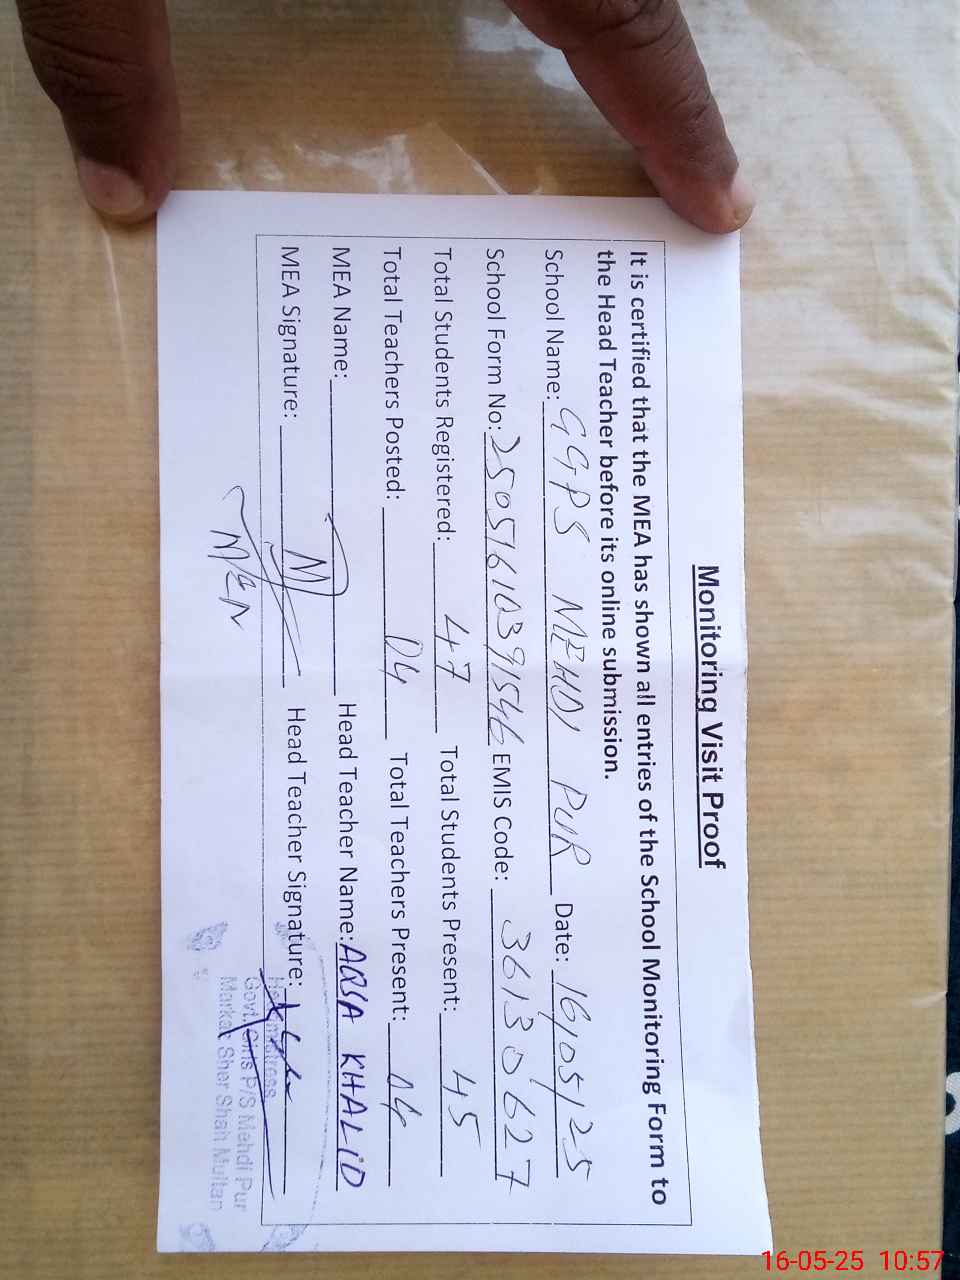 Monitoring Visit Proof
It is certified that the MEA has shown all entries of the School Monitoring Form to
the Head Teacher before its online submission.
School Name: GGPS MEHDI PUR Date: 16/05/25
School Form No: 25051610391546 EMIS Code: 36130627
Total Students Registered: 47 Total Students Present: 45
Total Teachers Posted: 04 Total Teachers Present: 04
MEA Name: Head Teacher Name: AQSA KHALID
MEA Signature: Head Teacher Signature:
Headmistress
Govt. Girls P/S Mehdi Pur
Markaz Sher Shah Multan
16-05-25 10:57